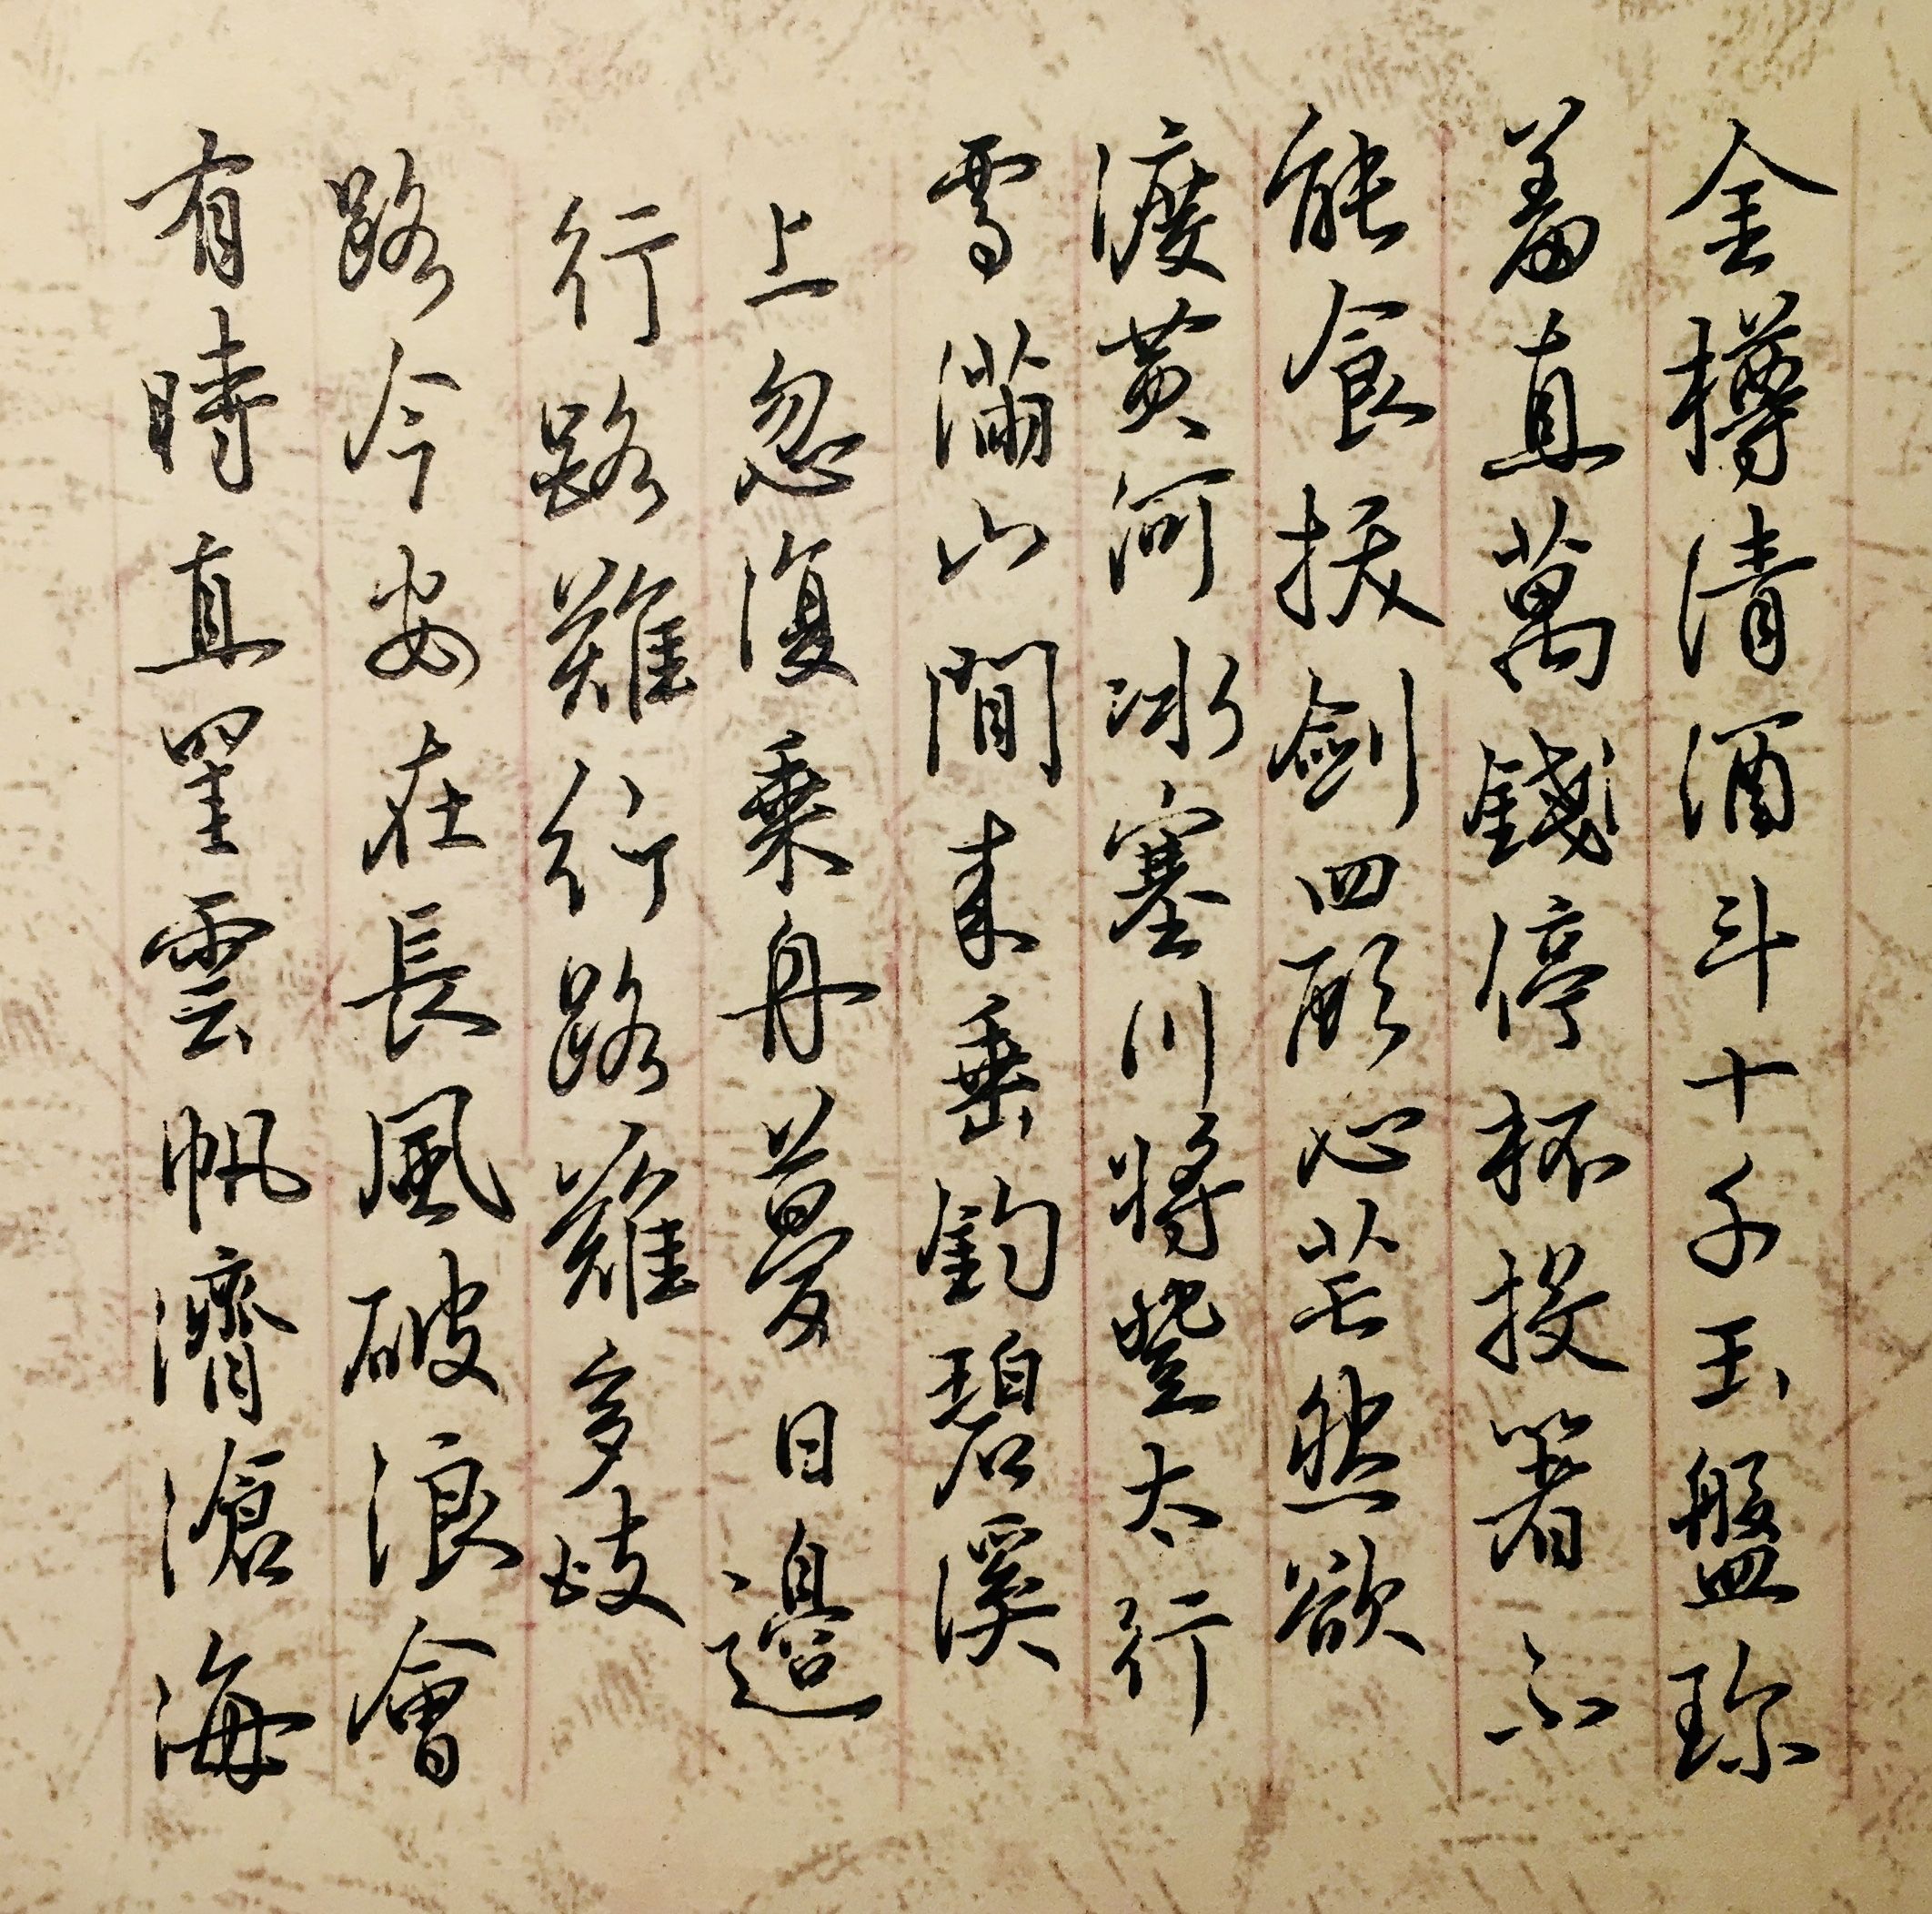 金樽清酒斗十千玉盤珍
羞直萬錢停杯投箸不
能食拔劍四顧心茫然欲
渡黃河冰塞川將登太行
雪滿山閒來垂釣碧溪
上忽復乘舟夢日邊
行路難行路難多歧
路今安在長風破浪會
有時直掛雲帆濟滄海